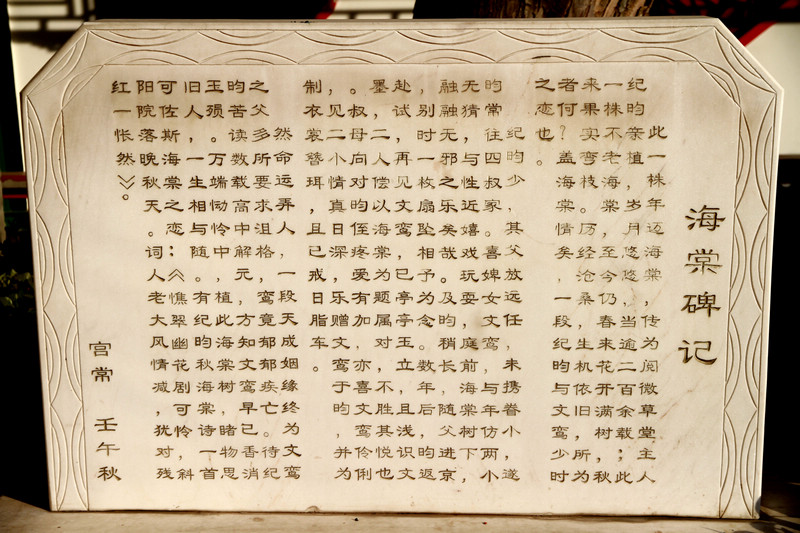 海棠碑记
此一株年迈海棠，传为阅微草堂主人
纪昀亲植，岁月悠悠，当逾二百余载；此
一株不老海棠，至今仍春来花开满树，秋
来果实弯枝。历经沧桑，生机依旧，所为
者何？盖海棠情矣，一段纪昀与文鸾少时
之恋也。
纪昀少，其父放远任，未携眷小，遂
昀常往四叔家。喜婢女文鸾，与年仿，两小
无猜，与性近嬉戏玩耍，庭前海棠树下，
融融无邪之乐矣哉。及昀稍长，随父进京，
，别时一枚扇坠相予为念。数年后，昀返
赴试，再见文鸾，已亭亭玉立，且浅识文
墨，二人偿以海棠为题属对，不胜其悦也
。叔母向对昀侄疼爱有加，意亦喜文鸾伶俐
，见二小情真日深，乐赠鸾于昀，并为
制衣裳簪珥，且已戒日脂车。
然命运弄人，一段天成姻缘终为文鸾
之父多所要求沮格，鸾竟郁郁疾亡。待纪
昀苦读数载高中解元，方知文鸾早已香消
玉殒。万端恸中，植此海棠树，睹物思
旧人，一生相怜与随。有纪昀秋海棠诗一首
可佐斯海棠之恋：《憔翠幽花剧可怜，斜
阳院落晚秋天。词人老大风情减，犹对残
红一怅然》。
宫常 壬午秋